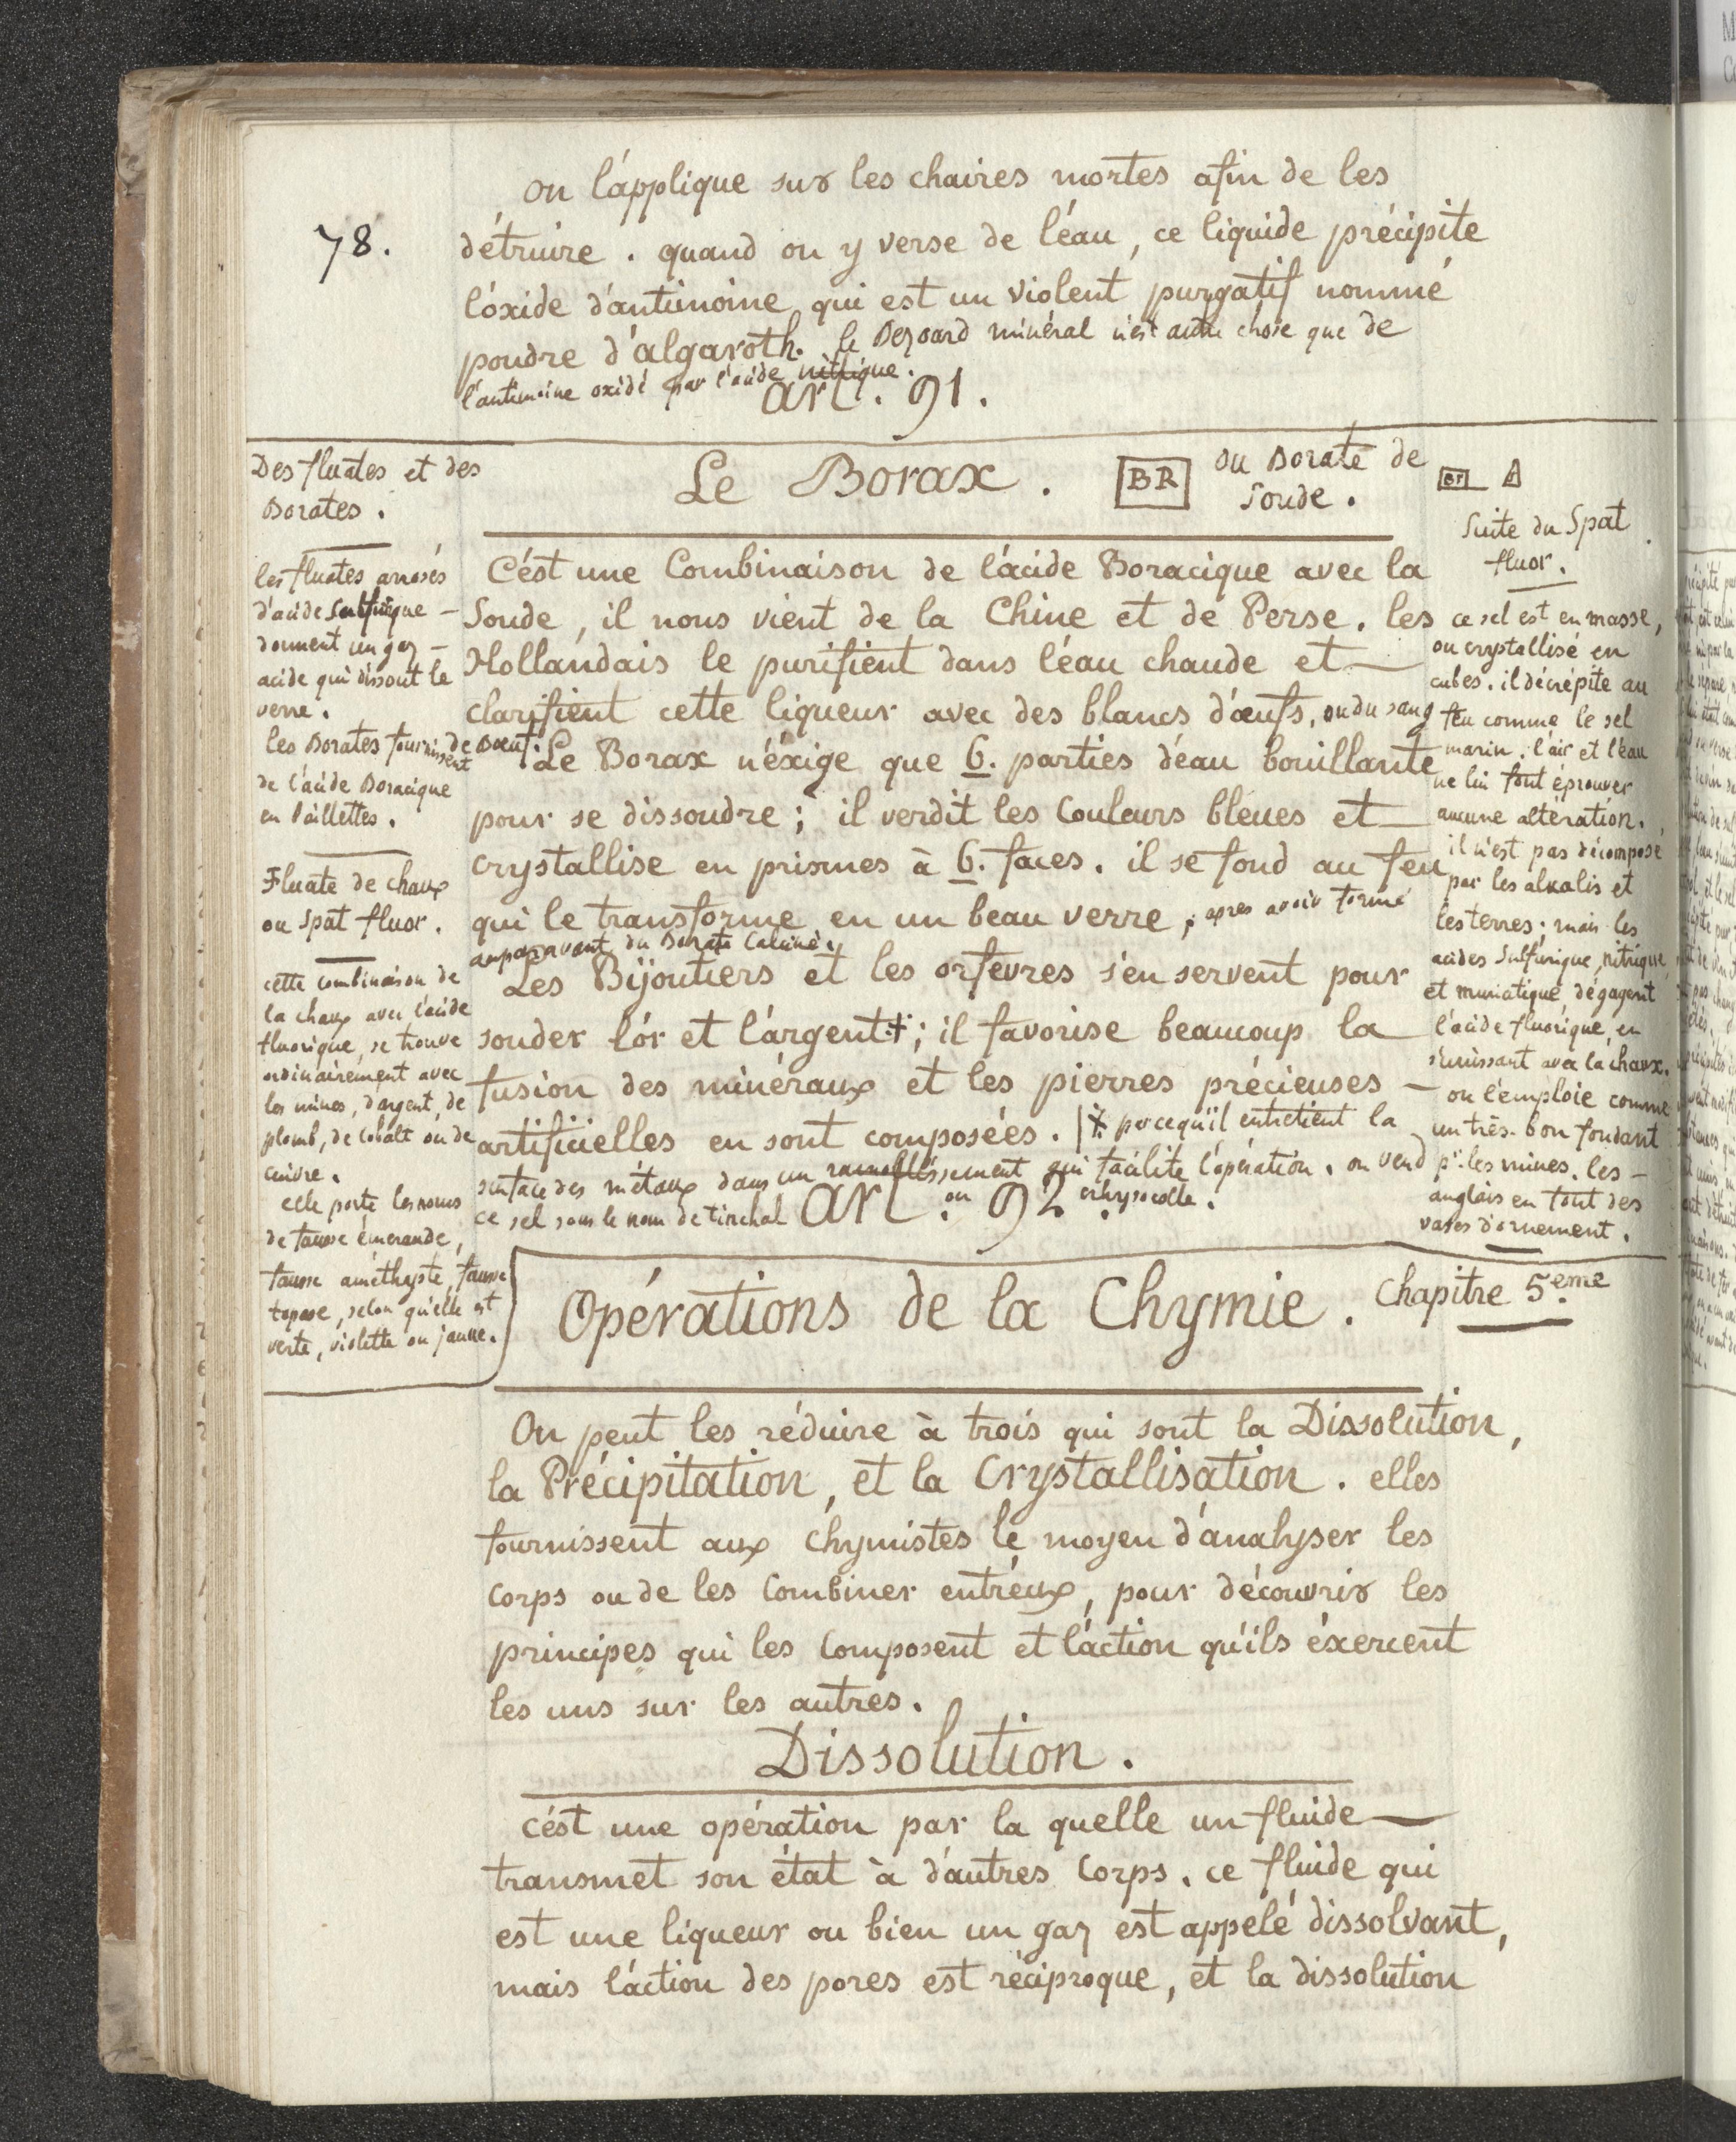 78.
on l'applique sur les chaires mortes afin de les
détruire . quand on y verse de l'éau, ce liquide précipite
l'óxide d'antimoine qui est un violent purgatif nommé
poudre d'algaroth. le Bezoard minéral n'est autre chose que de
l'antimoine oxidé par l'acide nitrique.
art. 91.
Le Borax . BR ou Borate de
soude .
C'ést une Combinaison de l'ácide Boracique avec la
Soude, il nous vient de la Chine et de Perse. les
Hollandais le purifient dans l'éau chaude et
clarifient cette liqueur avec des blancs d'œufs, ou du sang
de Bœuf. Le Borax n'éxige que 6. parties d'éau bouillante
pour se dissoudre ; il verdit les Couleurs bleues et
crystallise en prismes à 6. faces. il se fond au feu
qui le transforme en un beau verre, apres avoir formé
auparavant du Borate Calciné.
Les Bijoutiers et les orfevres s'en servent pour
souder l'ór et l'árgent ⵜ ; il favorise beaucoup la
fusion des minéraux et les pierres précieuses
artificielles en sont composées. | ⵜ parcequ'il entretient la
surface des métaux dans un ramollissement qui facilite l'opération. on vend
ce sel sous le nom de tinchal ou chrysocolle.
art. 92.
Des fluates et des
Borates .
les fluates arrosés
d'acide Sulfurique
donnent un gaz
acide qui dissout le
verre .
les Borates fournissent
de l'acide Boracique
en Paillettes .
Fluate de chaux
ou spat fluor .
cette combinaison de
la chaux avec l'acide
fluorique, se trouve
ordinairement avec
les mines, d'argent, de
plomb, de cobalt ou de
cuivre .
elle porte les noms
de fausse émeraude,
fausse améthyste, fausse
topase, selon qu'elle est
verte, violette ou jaune.
Br
Suite du Spat
fluor .
ce sel est en masse,
ou crystallisé en
cubes. il décrépite au
feu comme le sel
marin. l'air et l'eau
ne lui font éprouver
aucune altération.
il n'est pas décomposé
par les alkalis et
les terres; mais les
acides Sulfurique, nitrique
et muriatique, dégagent
l'acide fluorique, en
s'unissant avec la chaux.
on l'emploie comme
un très-bon fondant
pr. les mines. les
anglais en font des
vases d'ornement .
Opérations de la Chymie. Chapitre 5.eme
On peut les réduire à trois qui sont la Dissolution,
la Précipitation, et la Crystallisation. elles
fournissent aux chymistes le moyen d'analyser les
corps ou de les Combiner entr'éux, pour découvrir les
principes qui les Composent et l'áction qu'ils éxercent
les uns sur les autres.
Dissolution .
c'ést une opération par la quelle un fluide
transmet son état à d'autres Corps. ce fluide qui
est une liqueur ou bien un gaz est appelé dissolvant,
mais l'áction des pores est réciproque, et la dissolution